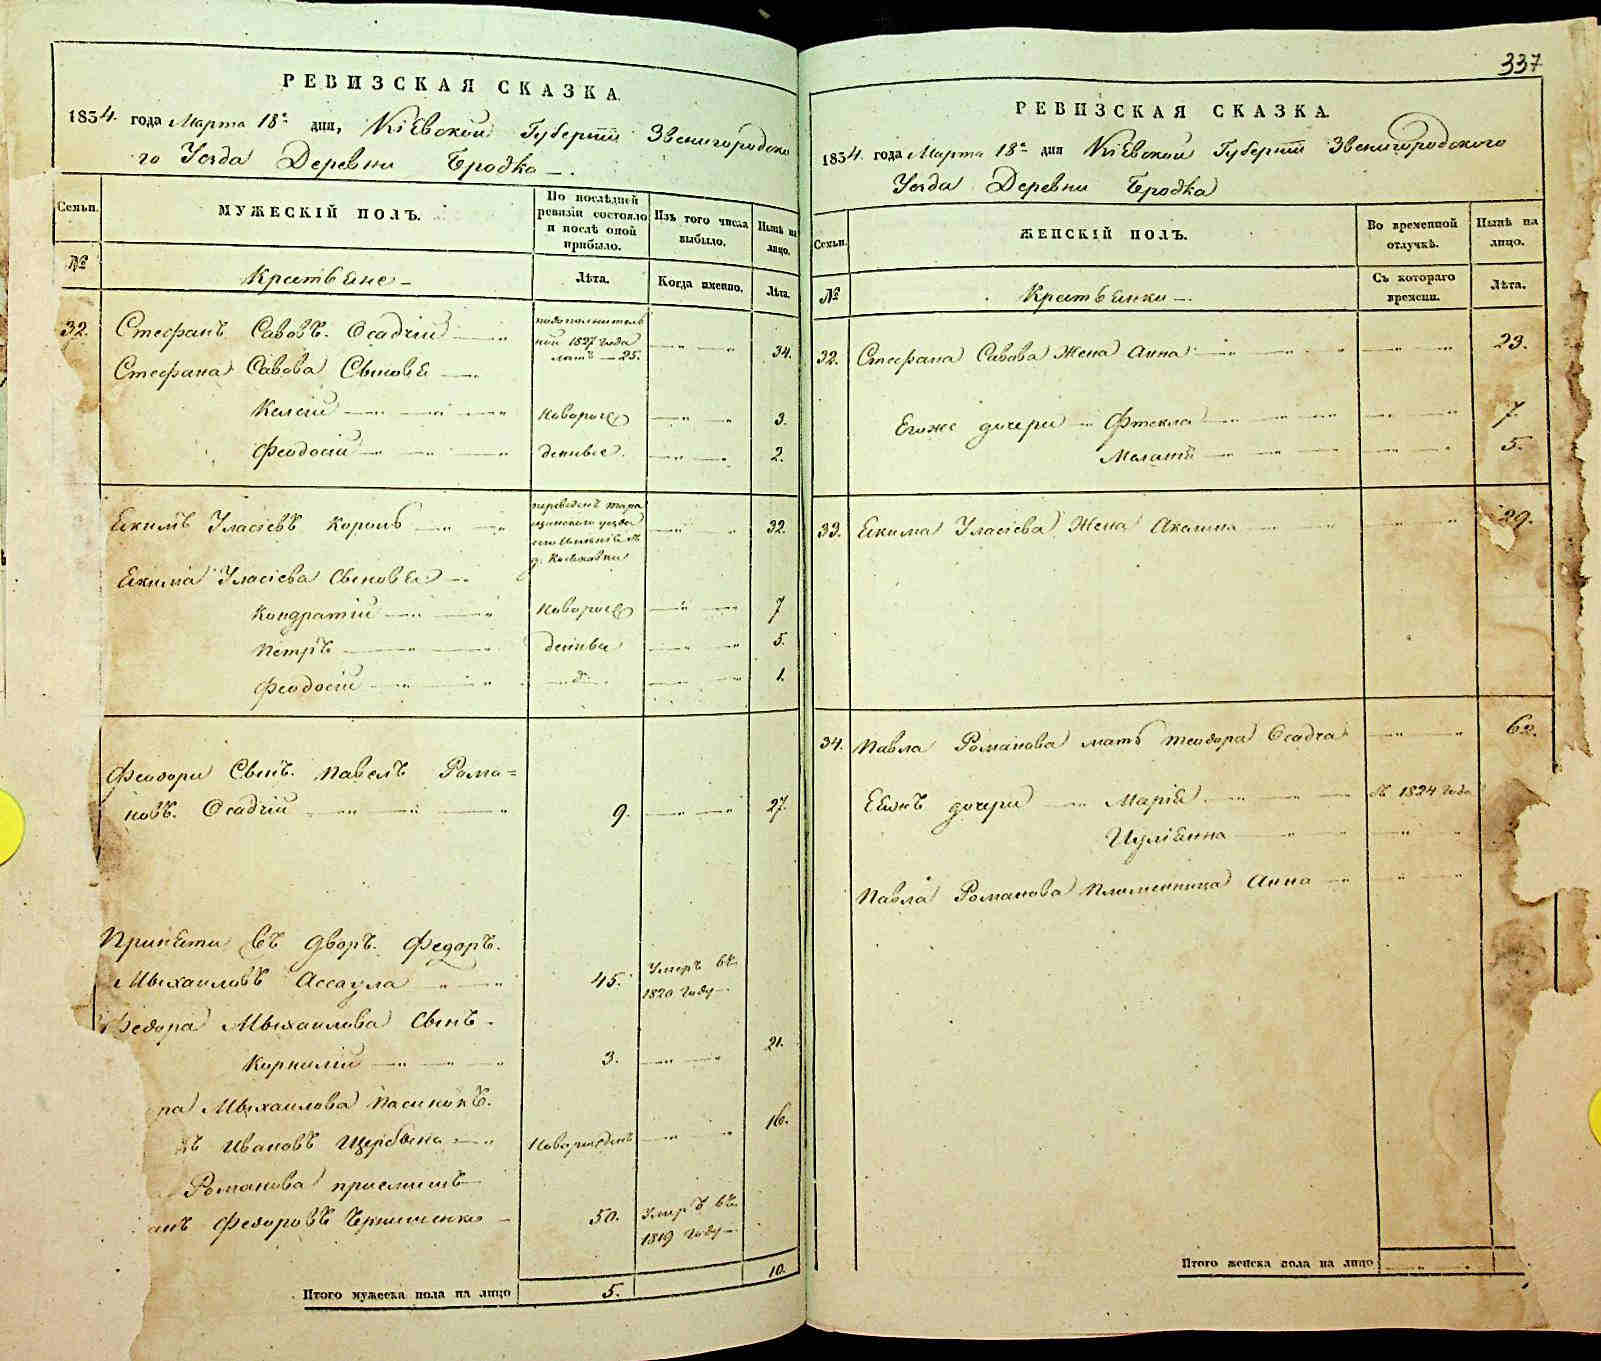 РЕВИЗСКАЯ СКАЗКА.
1834. года Марта 18го дня, Кіевской Губерніи Звенигородско
го Уезда Деревни Бродка —.
Семьи. МУЖЕСКІЙ ПОЛЪ. По послѣдней ревизіи состояло и послѣ оной прибыло. Изъ того числа выбыло. Нынѣ на лицо.
№ Крестьяне — Лѣта. Когда именно. Лѣта.
32. Стефанъ Савовъ Осадчій 1827 года 25. 34.
Стефана Савова Сыновья
новорож 3.
Феодосій денные 2.
Екимъ Уласіевъ Король 32.
Екима Уласіева Сыновья —
Кондратій новорож 7
Петръ денные 5.
Феодосій 1.
Феодоры Сынъ Павелъ Рома=
новъ Осадчій 9. 27.
Приняти въ дворъ Федоръ
Мыхаиловъ Ассаула 45. Умеръ въ 1820 году
Федора Мыхаилова Сынъ
Корнилій 3. 21.
ра Мыхаилова пасинокъ
ъ Ивановъ Щербына Новорожденъ 16.
Романова приемишъ
анъ Федоровъ 50. Умеръ въ 1819 году
Итого мужеска пола на лицо 5. 10.
337
РЕВИЗСКАЯ СКАЗКА.
1834. года Марта 18го дня Кіевской Губерніи Звенигородского
Уезда Деревни Бродка
Семьи. ЖЕНСКІЙ ПОЛЪ. Во временной отлучкѣ. Нынѣ на лицо.
№ Крестьянки —. Съ котораго времени. Лѣта.
32. Стефана Савова Жена Анна 23.
Егоже дочери 7.
Маланія 5.
33. Екима Уласіева Жена Акилина 29.
34. Павла Романова мать Теодора Осадча 60.
дочери Марія 1824 года
Иуліянна
Павла Романова Племенница Анна
Итого женска пола на лицо